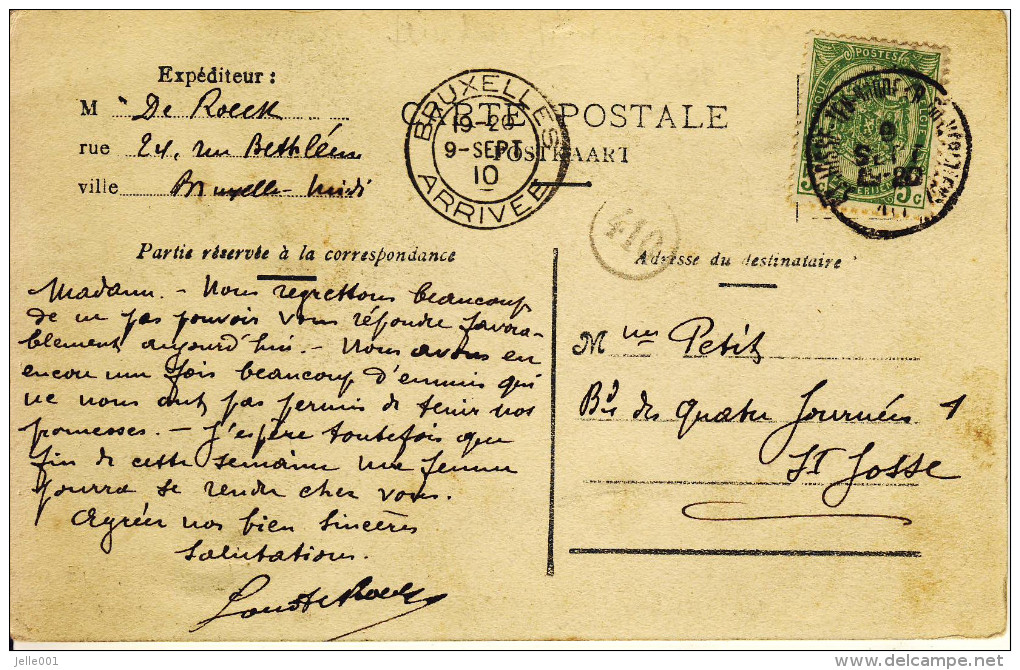 Expéditeur :
M De Roeck
rue 24, rue Bethléem
ville Bruxelles-Midi
BRUXELLES
19-20
9-SEPT
10
ARRIVEE
CARTE POSTALE
POSTKAART
POSTES
5 5c
9
SEPT
410
Partie réservée à la correspondance
Adresse du destinataire
Madame. - Nous regrettons beaucoup
de ne pas pouvoir vous répondre favora-
blement aujourd'hui. - Nous avons eu
encore une fois beaucoup d'ennuis qui
ne nous ont pas permis de tenir nos
promesses. - J'espère toutefois que
fin de cette semaine une femme
pourra se rendre chez vous.
Agréer nos bien sincères
salutations.
Mme Petit
Bd des Quatre Journées 1
St Josse
jelle001
www.delcampe.net